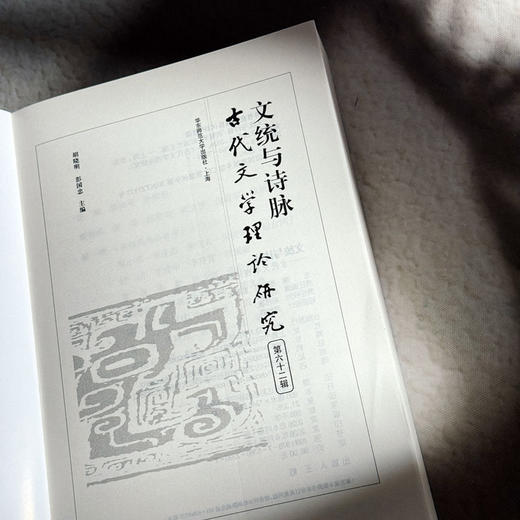 文统与诗脉
古代文学理论研究
第六十二辑
华东师范大学出版社·上海
胡晓明 彭国忠 主编